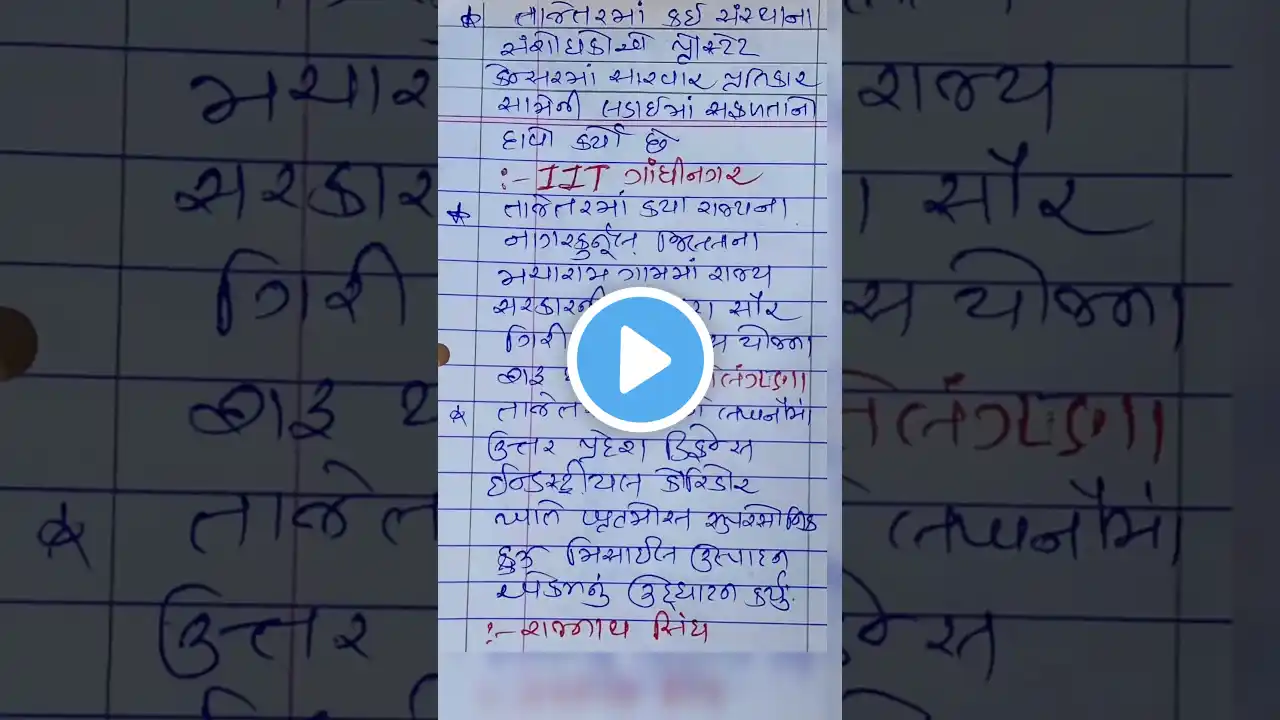 * તાજેતરમાં કઈ સંસ્થાના
સંશોધકોએ પ્રોસ્ટેટ
કેન્સરમાં સારવાર પ્રતિકાર
સામેની લડાઈમાં સફળતાનો
દાવો કર્યો છે
:- IIT ગાંધીનગર
* તાજેતરમાં કયા રાજ્યના
નાગરકુર્નૂલ જિલ્લાના
મચારામ ગામમાં રાજ્ય
સરકારની સૌર
ગિરી યોજના
શરૂ તેલંગણા
* તાજેત લખનૌમાં
ઉત્તર પ્રદેશ ડિફેન્સ
ઈન્ડસ્ટ્રીયલ કોરિડોર
ખાતે બ્રહ્મોસ સુપરસોનિક
ક્રુઝ મિસાઈલ ઉત્પાદન
એકમનું ઉદ્ઘાટન કર્યું.
:- રાજનાથ સિંઘ